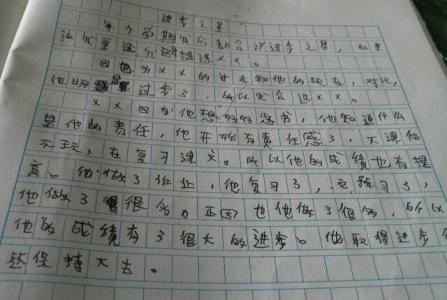 进步之星
每个学期我们都会评进步之星，如果
让我来选我会选xx。
因为xx的过去和他的现在，对比，
他明显进步了，所以我会选xx。
xx因为他想好好念书，他知道什么
是他的责任，他开始有责任感了，下课他
不玩，在复习课文。所以他的成绩也有提
高。他做了作业，他复习了，也预习了，
他做了很多。正因也他做了很多，所以
他的成绩有了很大的进步。他取得进步会
还保持下去。